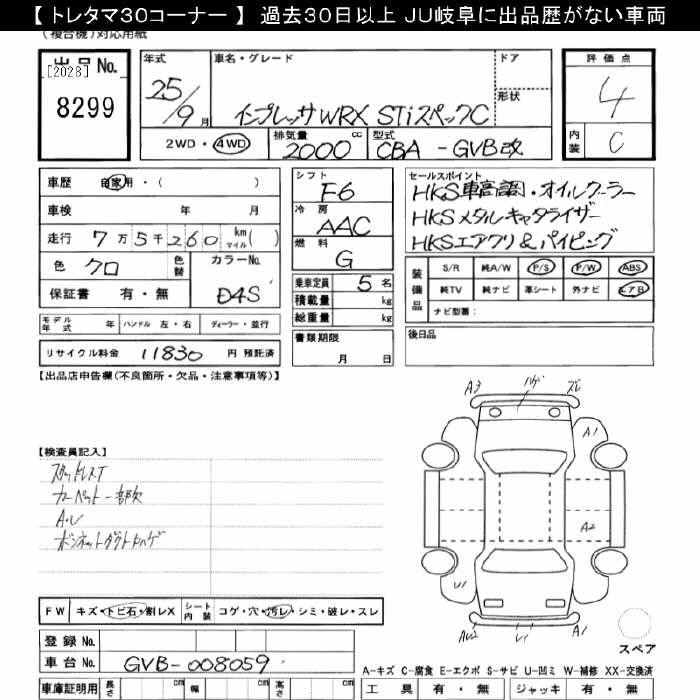 【 トレタマ30コーナー 】 過去30日以上 JU岐阜に出品歴がない車両
(複合機)対応用紙
出品No.
[2028]
8299
年式
25/9月
車名・グレード
インプレッサWRX STiスペックC
ドア
形状
2WD・4WD
排気量
2000cc
型式
CBA - GVB改
評価点
4
内装
C
車歴 自家用・( )
車検 年 月
走行 7万5千260 km マイル( )
色 クロ
色替
カラーNo.
D4S
保証書 有・無
シフト
F6
冷房
AAC
燃料
G
乗車定員 5名
積載量 kg
総重量 kg
セールスポイント
HKS車高調・オイルクーラー
HKSメタルキャタライザー
HKSエアクリ&パイピング
装備品
S/R 純A/W P/S P/W ABS
純TV 純ナビ 革シート 外ナビ エアB
ナビ型番:
モデル年式 年 ハンドル 左・右 ディーラー・並行
リサイクル料金 11830 円 預託済
書類期限
月 日
後日品
【出品店申告欄(不良箇所・欠品・注意事項等)】
A3 ハゲ スレ
A1
A2
U1
AU2 U1 A1
【検査員記入】
スタッドレスT
カーペット一部欠
A・U
ボンネットダクトハゲ
FW キズ・トビ石・割レX
シート内装 コゲ・穴・汚レ・シミ・破レ・スレ
登録No.
車台No. GVB-008059
車庫証明用 長さ cm 幅 cm 高さ cm
スペア
A-キズ C-腐食 E-エクボ S-サビ U-凹ミ W-補修 XX-交換済
工具 有・無 ジャッキ 有・無